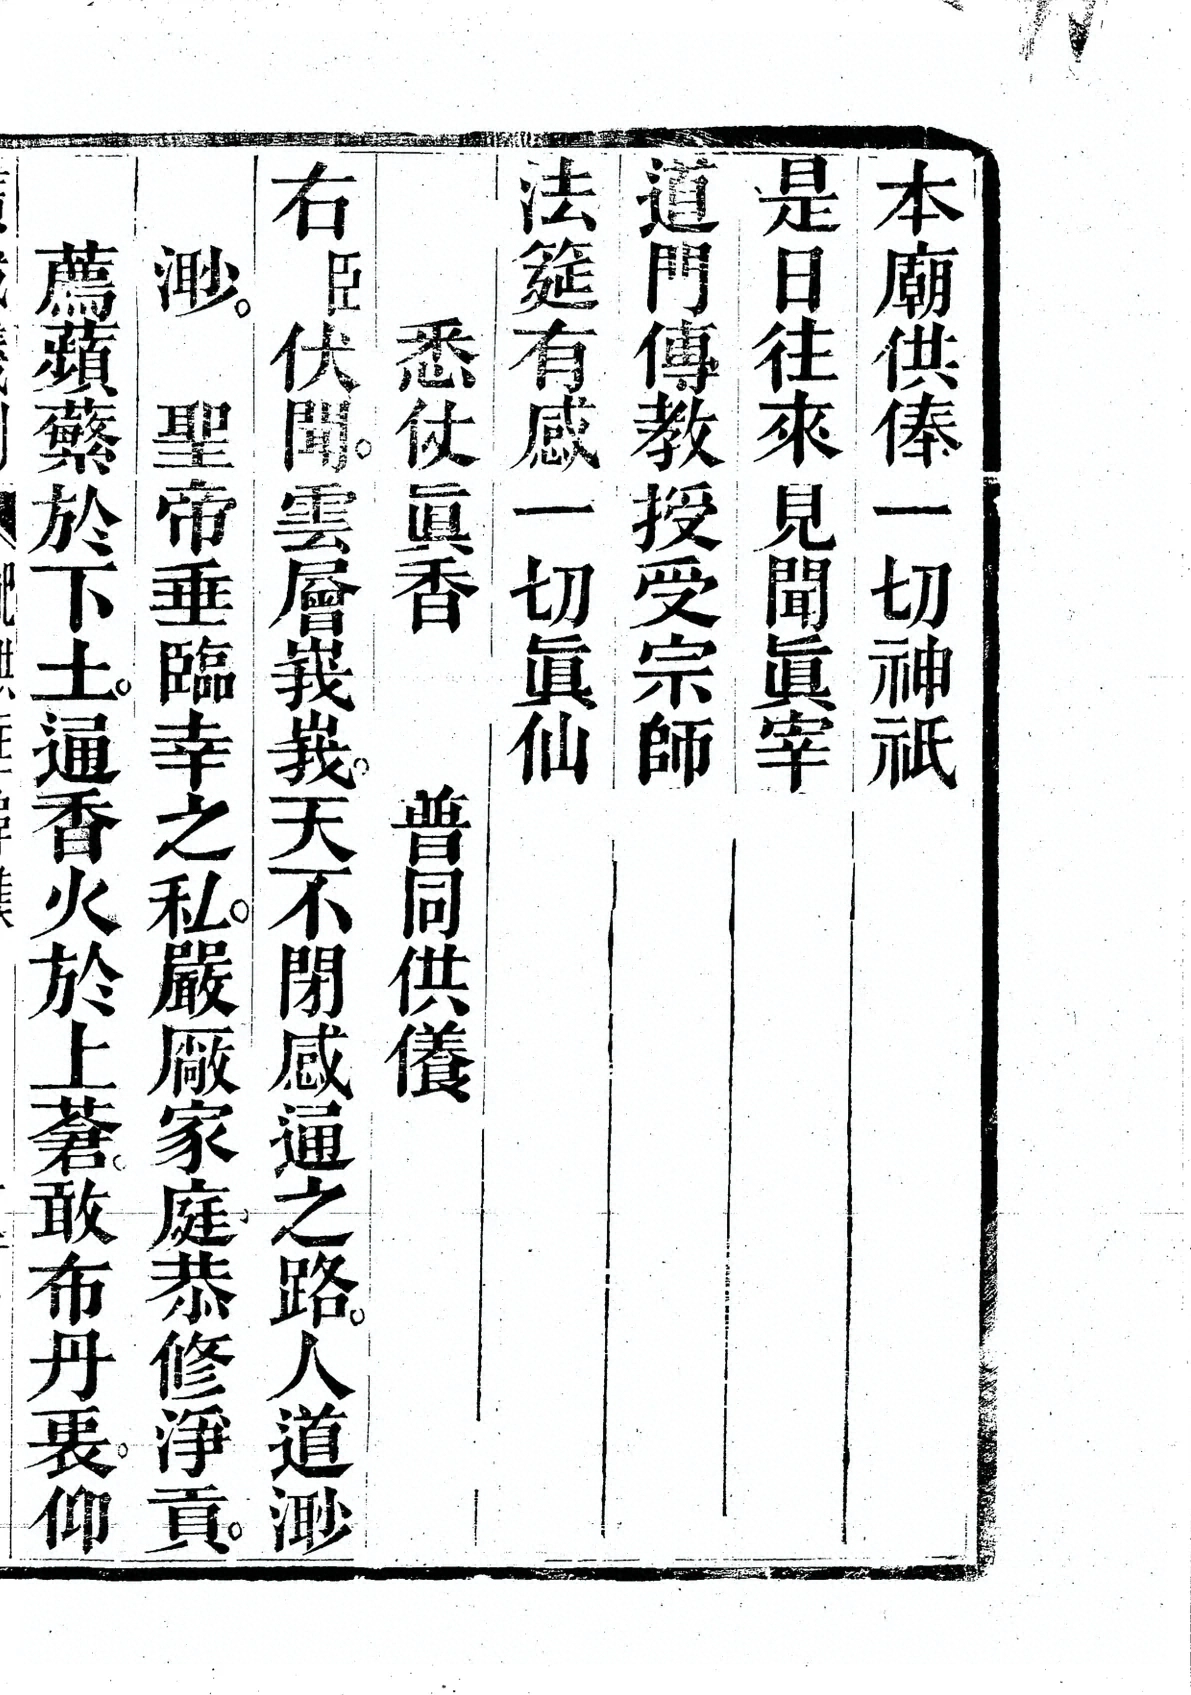 本廟供俸一切神祇
是日往來見聞眞宰
道門傳教授受宗師
法筵有感一切眞仙
悉仗眞香　普同供養
右臣伏聞。雲層峩峩。天不閉感通之路。人道渺
渺。　聖帝垂臨幸之私。嚴厰家庭。恭修淨貢。
薦蘋蘩於下土。通香火於上蒼。敢布丹衷。仰